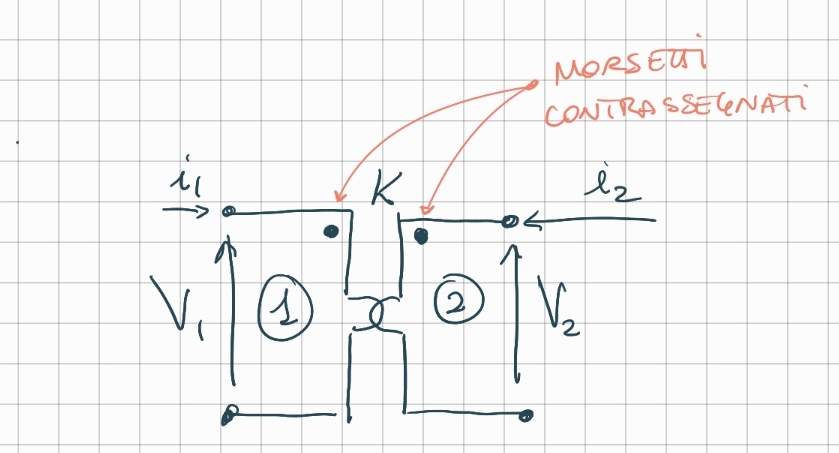 MORSETTI
CONTRASSEGNATI
i1 K i2
V1 1 2 V2